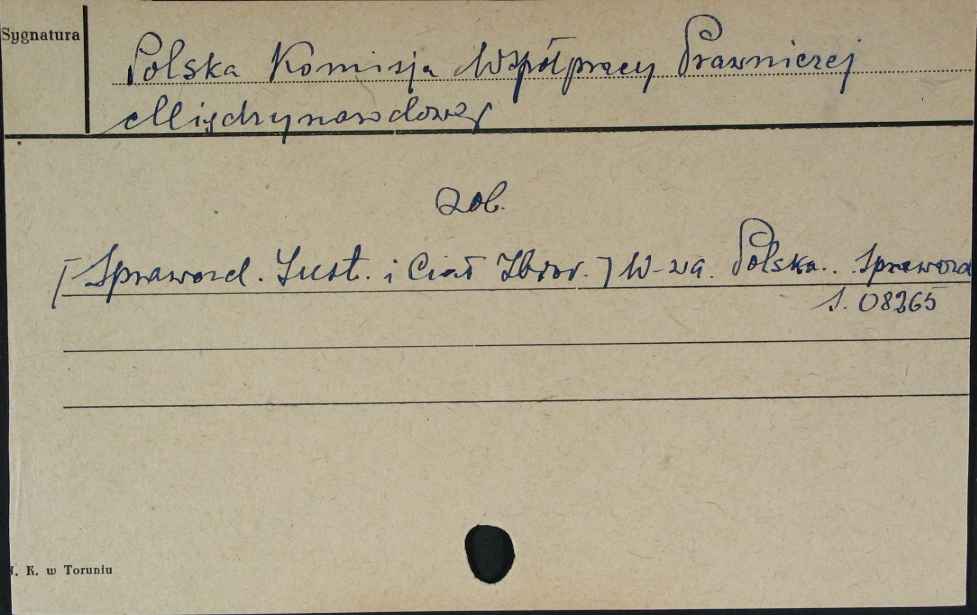 Sygnatura
Polska Komisja Współpracy Prawniczej
Międzynarodowej
zob.
[Sprawozd. Inst. i Ciał Zbior.] W-wa. Polska.. Sprawozd
S. 08265
. K. w Toruniu